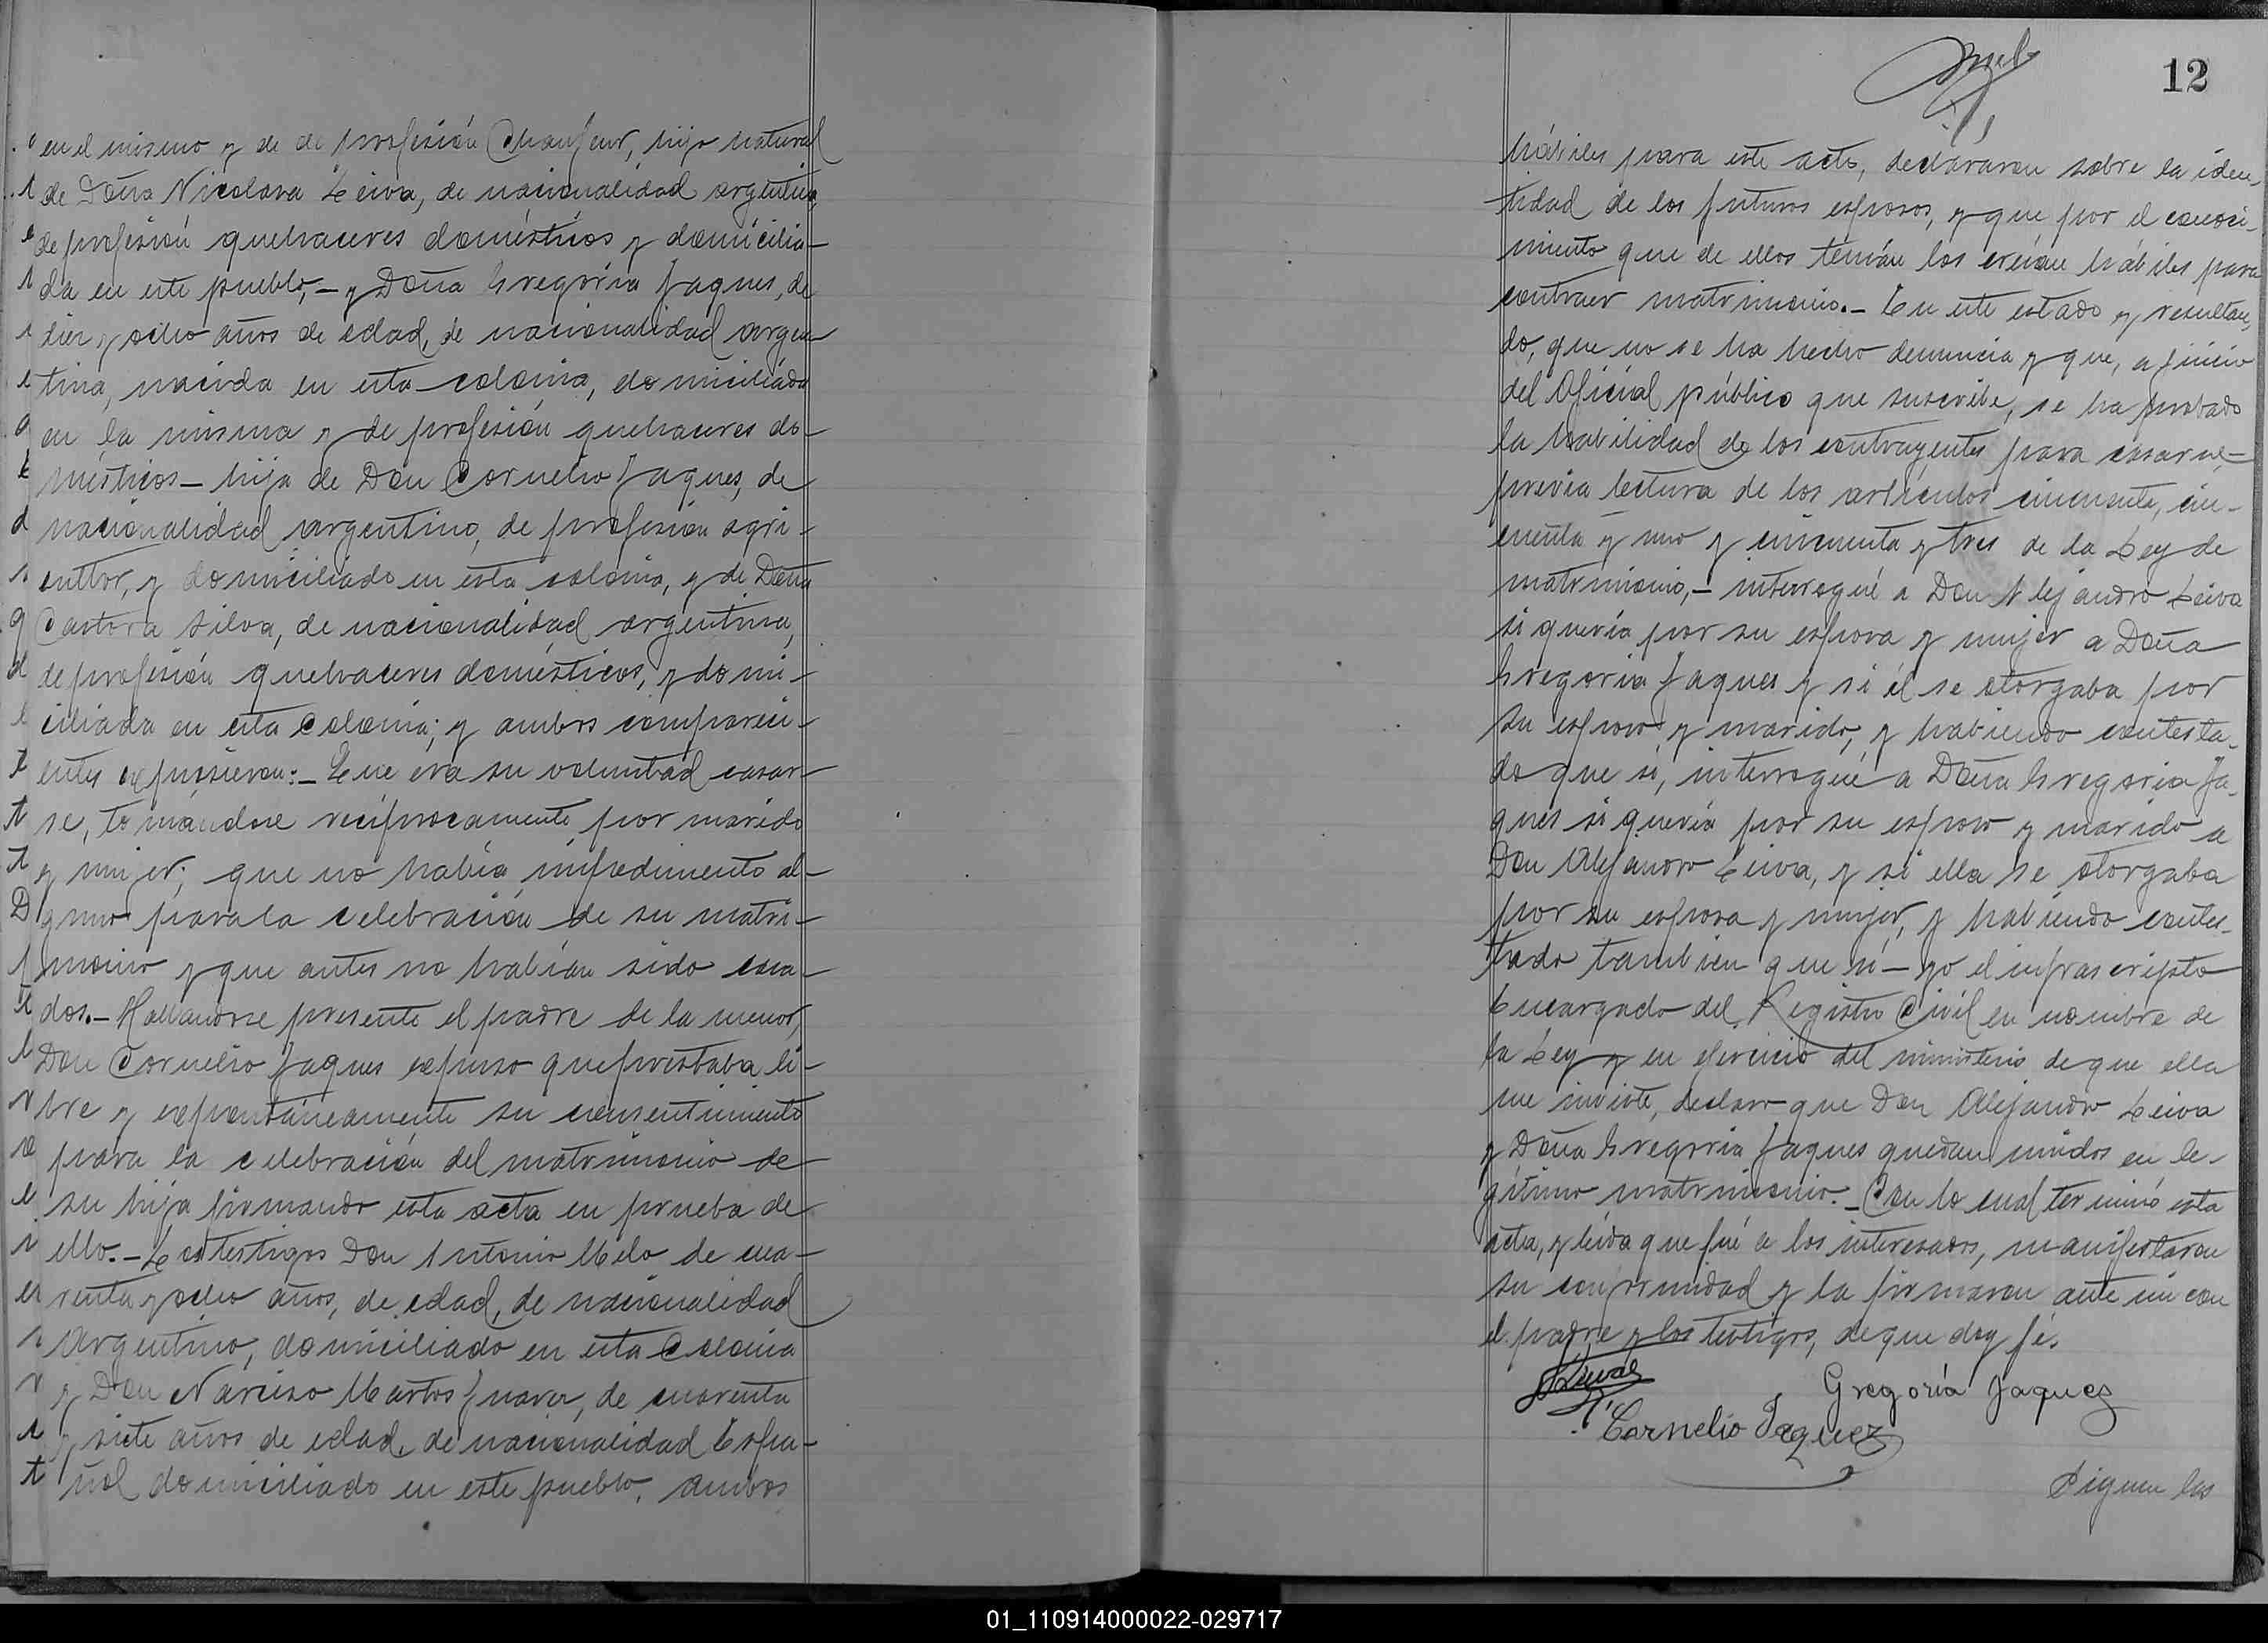 en el mismo y de de profesión Chaufeur, hijo natural
de Doña Nicolasa Leiva, de nacionalidad argentina,
de profesión quehaceres domésticos y domicilia-
da en este pueblo,- y Doña Gregoria Jaques, de
diez y ocho años de edad, de nacionalidad argen
tina, nacida en esta colonia, domiciliada
en la misma y de profesión quehaceres do-
mésticos- hija de Don Cornelio Jaques, de
nacionalidad argentino, de profesión agri-
cultor, y domiciliado en esta colonia, y de Doña
Castora Silva, de nacionalidad argentina,
de profesión quehaceres domésticos, y domi-
ciliada en esta Colonia; y ambos compareci-
entes expusieron:- Que era su voluntad casar-
se, tomándose recíprocamente por marido
y mujer; que no había impedimento al-
guno para la celebración de su matri-
monio y que antes no habían sido casa-
dos.- Hallandose presente el padre de la menor,
Don Cornelio Jaques expuso que prestaba li-
bre y expontáneamente su consentimiento
para la celebración del matrimonio de
su hija firmando esta acta en prueba de
ello.- Los testigos Don Antonio Melo de cua-
renta y ocho años, de edad, de nacionalidad
Argentino, domiciliado en esta Colonia
y Don Narciso Martos de cuarenta
y siete años de edad, de nacionalidad Espa-
ñol domiciliado en este pueblo, ambos
12
hábiles para este acto, declararon sobre la iden-
tidad de los futuros esposos, y que por el conoci-
miento que de ellos tenían los creían hábiles para
contraer matrimonio.- En este estado y resultan-
do, que no se ha hecho denuncia y que, a juicio
del Oficial público que suscribe, se ha probado
la habilidad de los contrayentes para casarse,-
previa lectura de los artículos cincuenta, cin-
cuenta y uno y cincuenta y tres de la Ley de
matrimonio,- interrogué a Don Alejandro Leiva
si quería por su esposa y mujer a Doña
Gregoria Jaques y si él se otorgaba por
su esposo y marido, y habiendo contesta-
do que sí, interrogué a Doña Gregoria Ja-
ques si quería por su esposo y marido a
Don Alejandro Leiva, y si ella se otorgaba
por su esposa y mujer, y habiendo contes-
tado tambien que sí- yo el infrascripto
Encargado del Registro Civil en nombre de
la Ley y en ejercicio del ministerio de que ella
me inviste, declaro que Don Alejandro Leiva
y Doña Gregoria Jaques quedan unidos en le-
gítimo matrimonio.- Con lo cual terminó esta
acta, y leída que fué a los interesados, manifestaron
su conformidad y la firmaron ante mí con
el padre y los testigos, de que doy fé.
Gregoria Jaques
Cornelio Jaquez
Siguen las
01_110914000022-029717